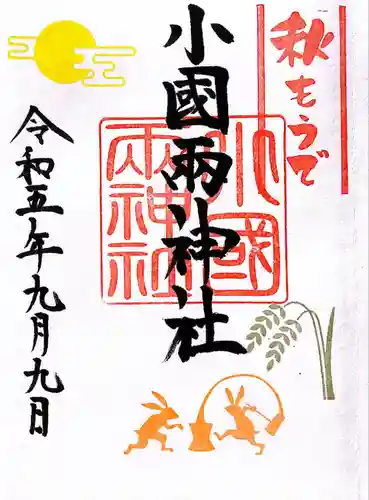 秋もうで
小國兩神社
小國兩神社
令和五年九月九日